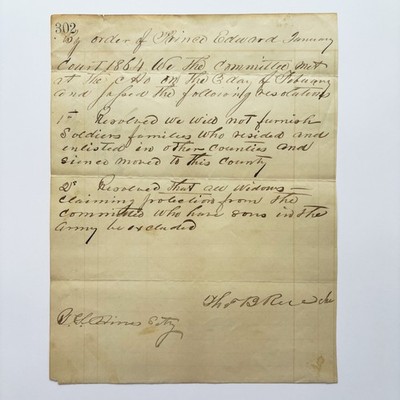 302
By order of Prince Edward, January
Court 1864 We the Committee met
at the C Ho on the 2 day of Febuary
and passed the following resolutions
1st Resolved We will not furnish
Soldiers families who resided and
enlisted in other Counties and
sience moved to this County
2d Resolved that all Widows
claiming protection from the
Committee who have sons in the
Army be excluded
Thos B